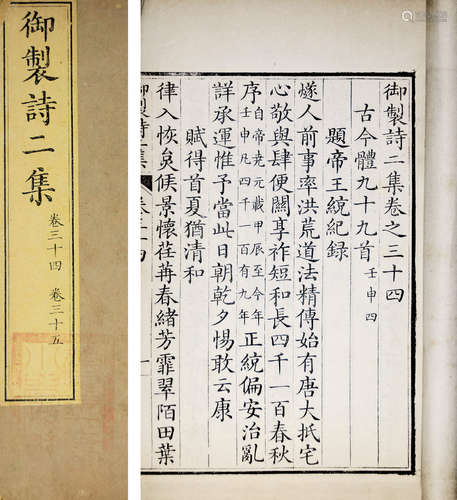 御製詩二集
卷三十四 卷三十五
御製詩二集卷之三十四
古今體九十九首 壬申四
題帝王統紀錄
燧人前事率洪荒道法精傳始有唐大抵宅
心敬與肆便關享祚短和長四千一百春秋
序 自帝堯元載甲辰至今年壬申凡四千一百有九年 正統偏安治亂
詳承運惟予當此日朝乾夕惕敢云康
賦得首夏猶清和
律入恢炱候景懷荏苒春緒芳霏翠陌田葉